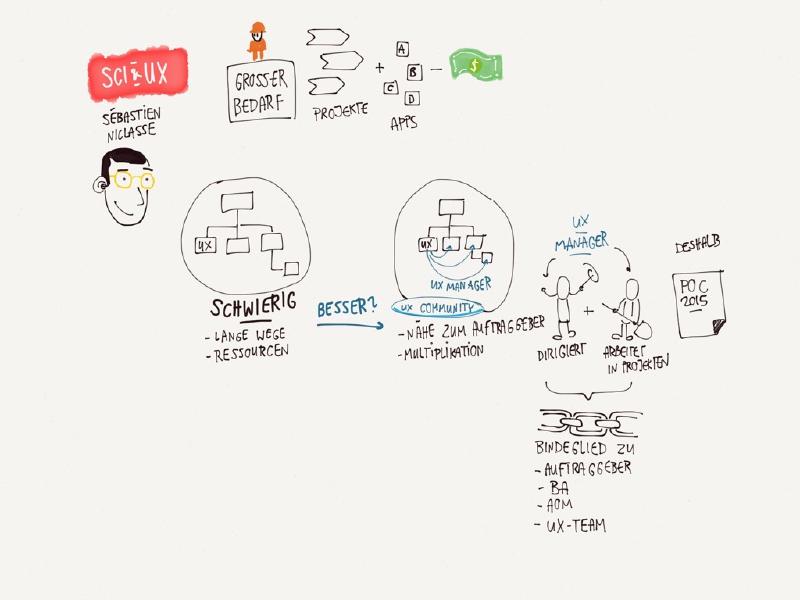 SCI & UX
SÉBASTIEN
NICLASSE
GROSSER
BEDARF
PROJEKTE
+
A
B
C
D
APPS
$
UX
SCHWIERIG
- LANGE WEGE
- RESSOURCEN
BESSER?
UX
UX MANAGER
UX COMMUNITY
- NÄHE ZUM AUFTRAGGEBER
- MULTIPLIKATION
UX
MANAGER
+
DIRIGIERT
ARBEITET
IN PROJEKTEN
DESHALB
POC
2015
BINDEGLIED ZU
- AUFTRAGGEBER
- BA
- AOM
- UX-TEAM